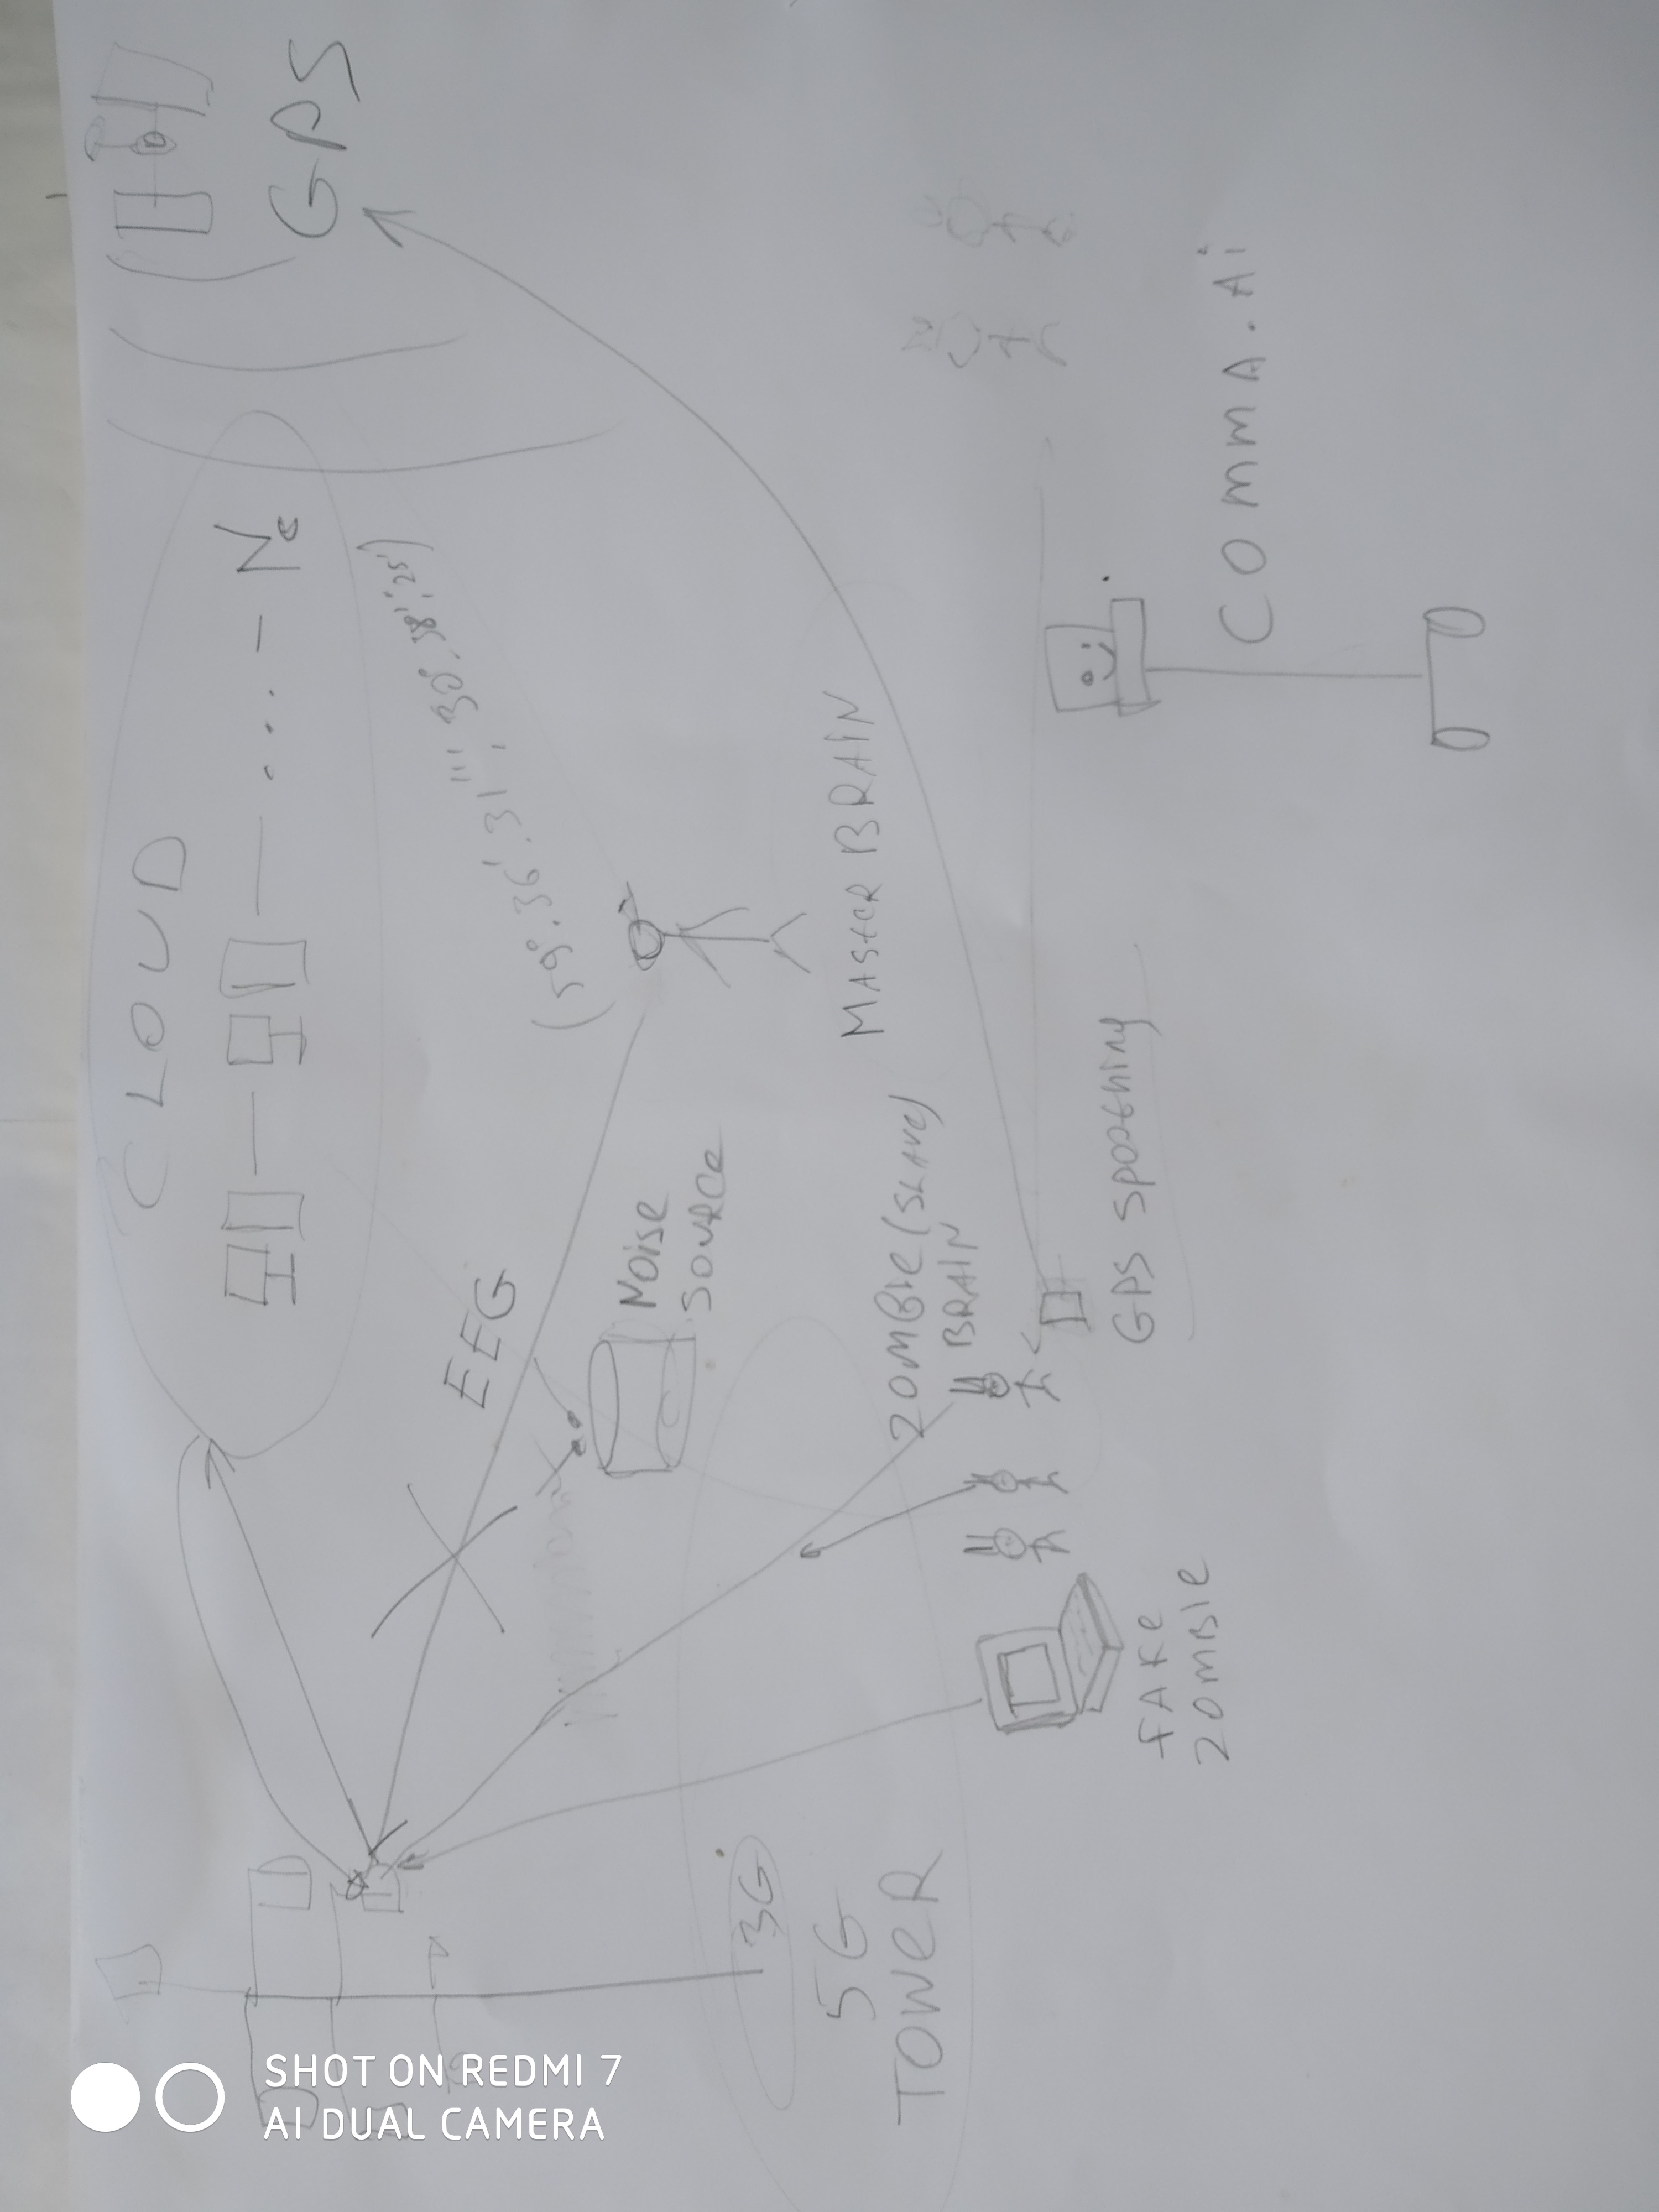 SHOT ON REDMI 7
AI DUAL CAMERA
CLOUD
Nc
GPS
EEG
(59°.36'.31''', 30°.38'.'25')
NOISE
SOURCe
3G
5G
TOWeR
MASteR BRAIN
ZOMBIe (SLAVe)
BRAIN
GPS spoothing
FAKe
ZOMBIe
COMMA.Ai